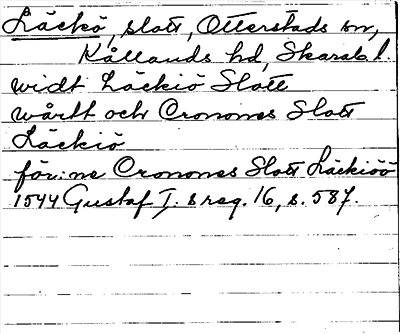 Läckö, slott, Otterstads sn,
Kållands hd, Skarab. l.
widt Läckiö Slott
wårtt och Cronones Slott
Läckiö
för:ne Cronones Slott Läckiöö
1544 Gustaf I. s reg. 16, s. 587.